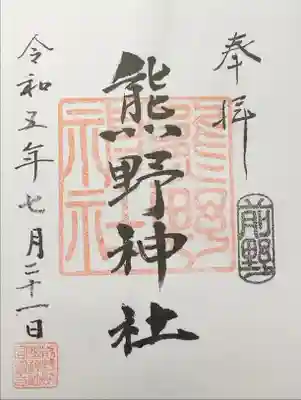 奉拝
前野
熊野神社
令和五年七月二十一日